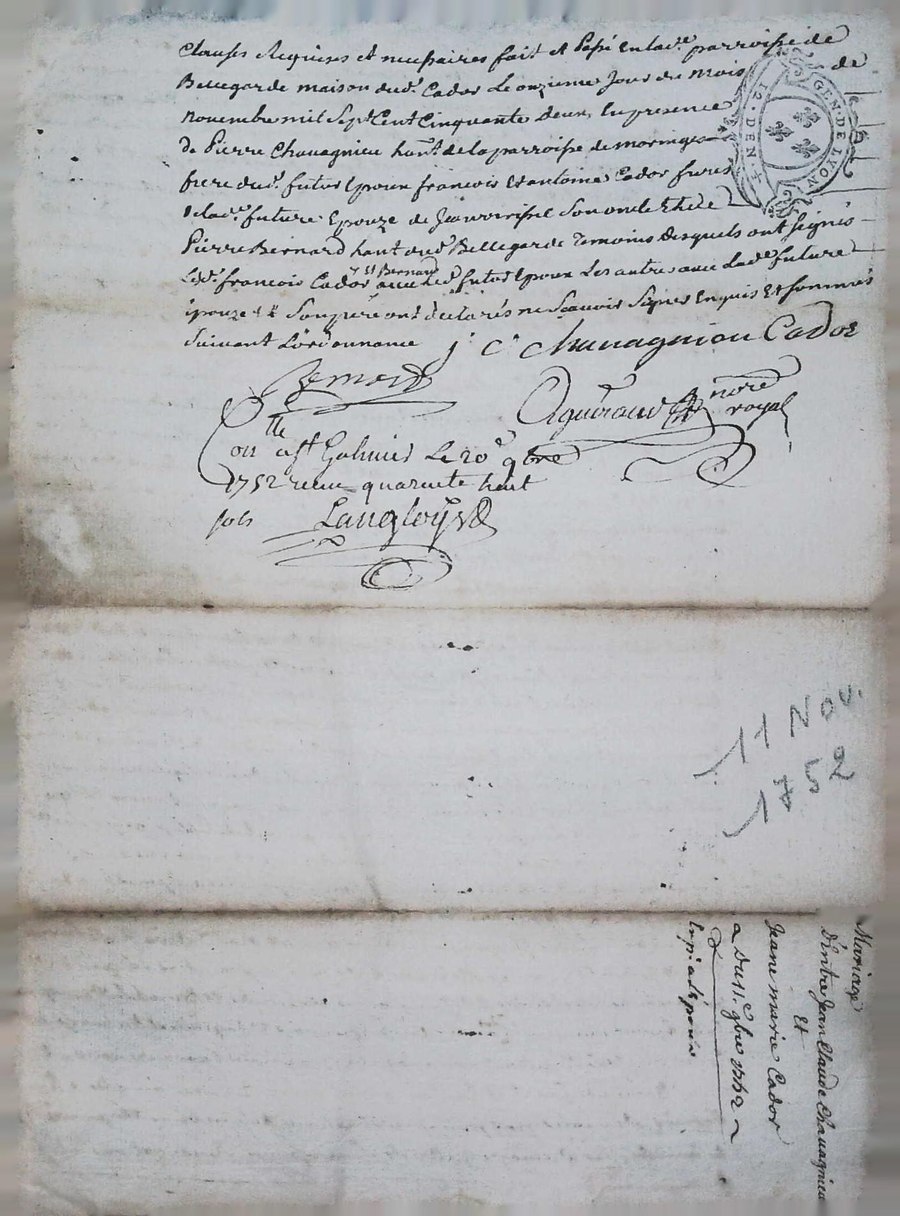 Clauses Requises et necessaires fait et passé en lad.e parroisse de
Bellegarde maison dud. Cador Le onzieme Jour du Mois de
novembre mil Sept Cent Cinquante deux, en presence
de Pierre Chavagnieu hant. de la parroisse de moringes
frere dud. futur Epoux francois Et antoine Cador freres
de lad.e future Epouze de Son oncle Et de
Pierre Bernard hant. dud. Bellegarde Temoins Desquels ont Signés
Led. francois Cador et Bernard avec Led. futur Epoux Les autres avec Lad.e future
épouze Et Son pere ont déclarés ne Scavoir Signer Enquis Et Sommés
Suivant L'ordonnance j. C. Chavagnieu Cador
Bernard
Aguiraud nore
royal
Con.tlle a St Galmier Le 20.e 9bre
1752 recu quarente huit
sols Langloys
GEN. DE LYON
12. DEN
11 Nov.
1752
Mariage
D'entre Jean Claude Chavagnieu
Et
Jeane marie Cador
Du 11.e 9bre 1752